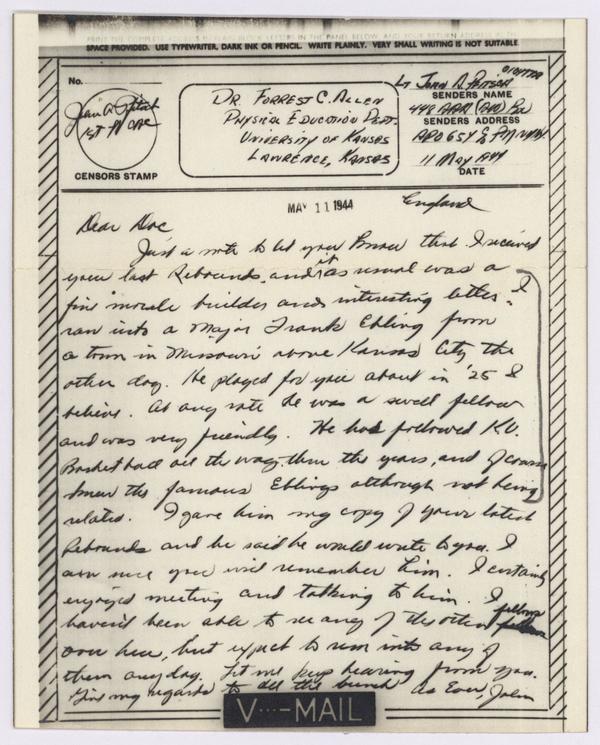 PRINT THE COMPLETE ADDRESS IN PLAIN BLOCK LETTERS IN THE PANEL BELOW, AND YOUR RETURN ADDRESS IN THE
SPACE PROVIDED. USE TYPEWRITER, DARK INK OR PENCIL. WRITE PLAINLY. VERY SMALL WRITING IS NOT SUITABLE.
No.
1ST LT CAC
CENSORS STAMP
DR. FORREST C. ALLEN
PHYSICAL EDUCATION DEPT.
UNIVERSITY OF KANSAS
LAWRENCE, KANSAS
LT JOHN A. PFITSCH
SENDERS NAME
448 AAA (AW) BN
SENDERS ADDRESS
APO 654 % PM NY NY
11 MAY 1944
DATE
MAY 11 1944
England
Dear Doc
Just a note to let you know that I received
your last Rebounds, and it as usual was a
fine morale builder and interesting letter. I
ran into a Major Frank Ebling from
a town in Missouri above Kansas City the
other day. He played for you about in '25 I
believe. At any rate he was a swell fellow
and was very friendly. He has followed K.U.
Basketball all the way thru the years, and of course
knew the famous Eblings although not being
related. I gave him my copy of your latest
Rebounds and he said he would write to you. I
am sure you will remember him. I certainly
enjoyed meeting and talking to him. I
haven't been able to see any of the other fellows
over here, but expect to run into any of
them any day. Let me keep hearing from you.
Give my regards to all the bunch As Ever, John
V···-MAIL